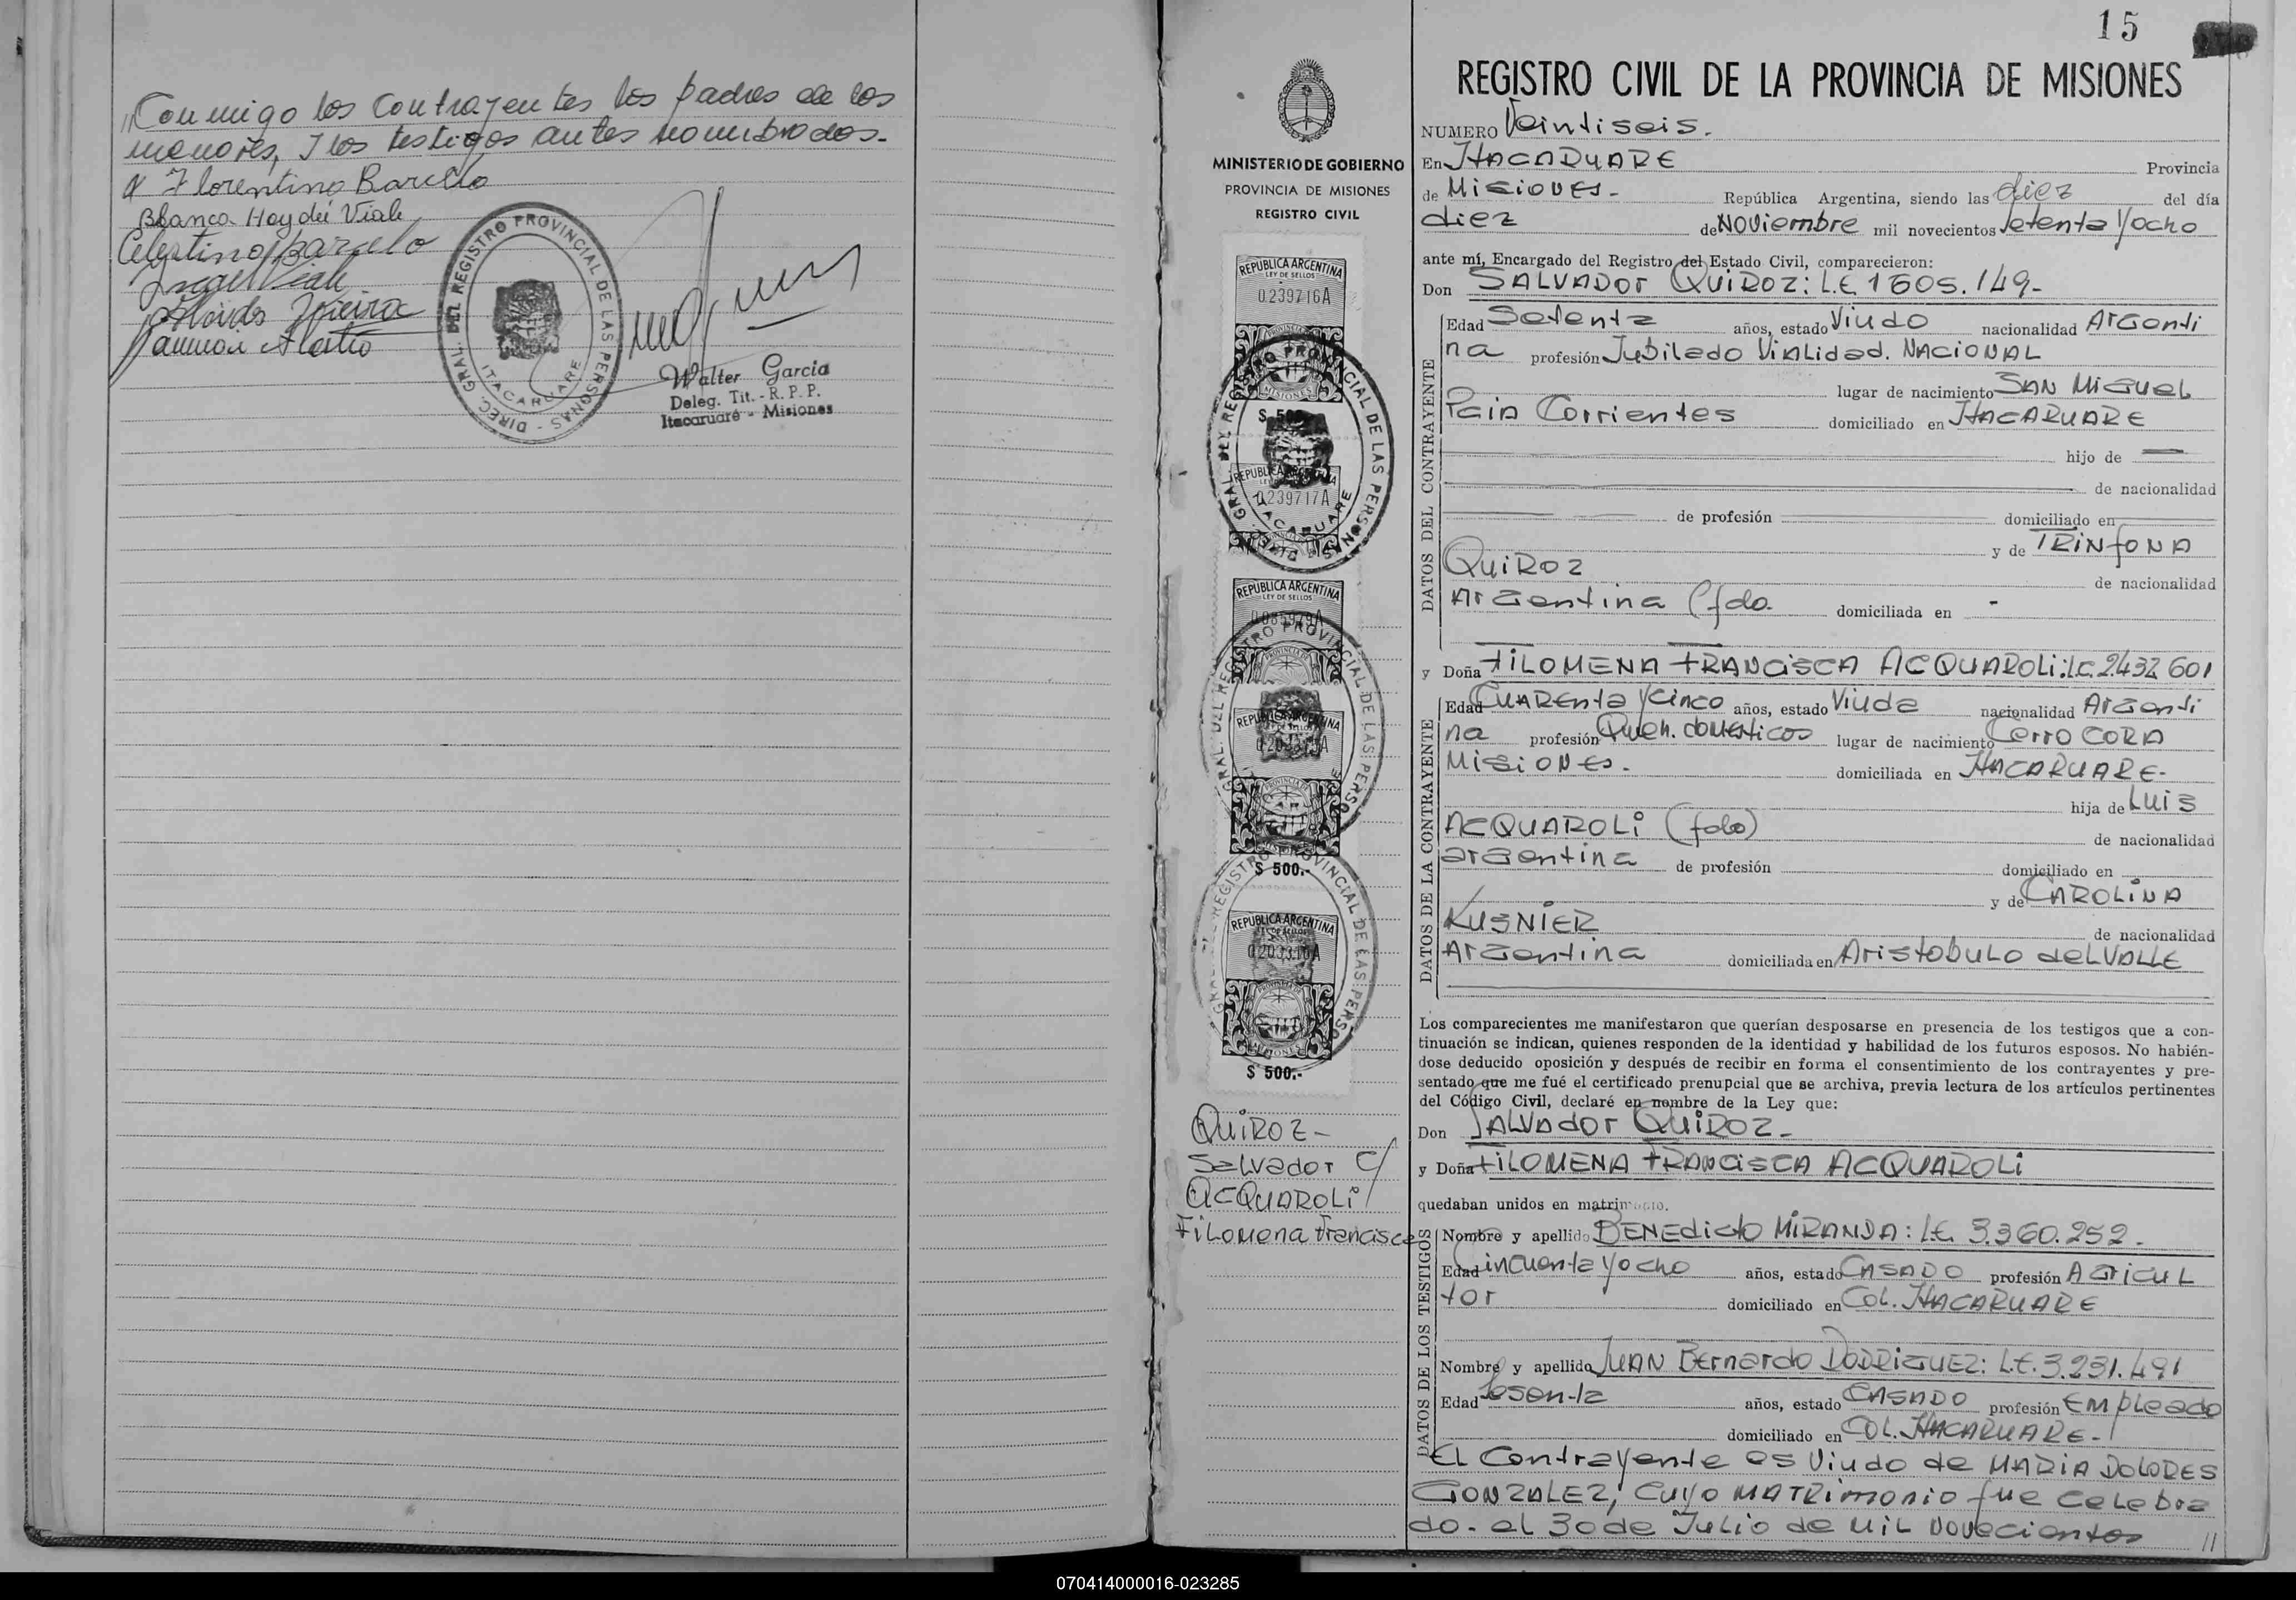 "Conmigo los Contrayentes los padres de los
menores, y los testigos antes nombrados.-
Florentino Barello
Blanca Haydeé Viale
Celestino Barcelo
Angel Viale
DIREC. GRAL. DEL REGISTRO PROVINCIAL DE LAS PERSONAS -
ITACARUARE
Walter Garcia
Deleg. Tit. - R. P. P.
Itacaruaré - Misiones
MINISTERIO DE GOBIERNO
PROVINCIA DE MISIONES
REGISTRO CIVIL
REPUBLICA ARGENTINA
LEY DE SELLOS
0239716A
MISIONES
$ 500
REPUBLICA ARGENTINA
0239717A
REPUBLICA ARGENTINA
LEY DE SELLOS
REPUBLICA ARGENTINA
$ 500.-
REPUBLICA ARGENTINA
LEY DE SELLOS
MISIONES
$ 500.-
QUIROZ -
Salvador C/
ACQUAROLI
Filomena Francisca
15
REGISTRO CIVIL DE LA PROVINCIA DE MISIONES
NUMERO Veintiseis.
En ITACARUARE Provincia
de Misiones.- República Argentina, siendo las diez del día
diez de Noviembre mil novecientos setenta y ocho
ante mí, Encargado del Registro del Estado Civil, comparecieron:
Don SALVADOR QUIROZ: L.E. 1605.149-
DATOS DEL CONTRAYENTE
Edad Setenta años, estado Viudo nacionalidad Argenti
na profesión Jubilado Vialidad. NACIONAL
lugar de nacimiento SAN MIGUEL
Corrientes domiciliado en ITACARUARE
hijo de —
de nacionalidad
de profesión domiciliado en
y de TRINFONA
QUIROZ de nacionalidad
Argentina (fda. domiciliada en -
y Doña FILOMENA FRANCISCA ACQUAROLI: L.C. 2.432 601
DATOS DE LA CONTRAYENTE
Edad Cuarenta y cinco años, estado Viuda nacionalidad Argenti
na profesión Queh. domesticos lugar de nacimiento Cerro CORA
Misiones. domiciliada en ITACARUARE-
hija de LUIS
ACQUAROLI (fdo) de nacionalidad
argentina de profesión domiciliado en
y de CAROLINA
KUSNIER de nacionalidad
Argentina domiciliada en Aristobulo del VALLE
Los comparecientes me manifestaron que querían desposarse en presencia de los testigos que a con-
tinuación se indican, quienes responden de la identidad y habilidad de los futuros esposos. No habién-
dose deducido oposición y después de recibir en forma el consentimiento de los contrayentes y pre-
sentado que me fué el certificado prenupcial que se archiva, previa lectura de los artículos pertinentes
del Código Civil, declaré en nombre de la Ley que:
Don SALVADOR QUIROZ-
y Doña FILOMENA FRANCISCA ACQUAROLI
quedaban unidos en matrimonio.
DATOS DE LOS TESTIGOS
Nombre y apellido BENEDICTO MIRANDA: L.E. 3.360.252.
Edad Cincuenta y ocho años, estado CASADO profesión Agricul
tor domiciliado en COL. ITACARUARE
Nombre y apellido JUAN Bernardo RODRIGUEZ: L.E. 3.231.491
Edad Sesenta años, estado CASADO profesión Empleado
domiciliado en COL. ITACARUARE-
El Contrayente es Viudo de MARIA DOLORES
GONZALEZ, cuyo MATRIMONIO fue celebra
do. el 30 de Julio de mil novecientos //
070414000016-023285